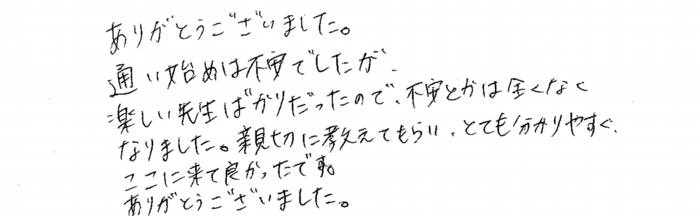 ありがとうございました。
通い始めは不安でしたが、
楽しい先生ばかりだったので、不安とかは全くなく
なりました。親切に教えてもらい、とても分かりやすく、
ここに来て良かったです。
ありがとうございました。